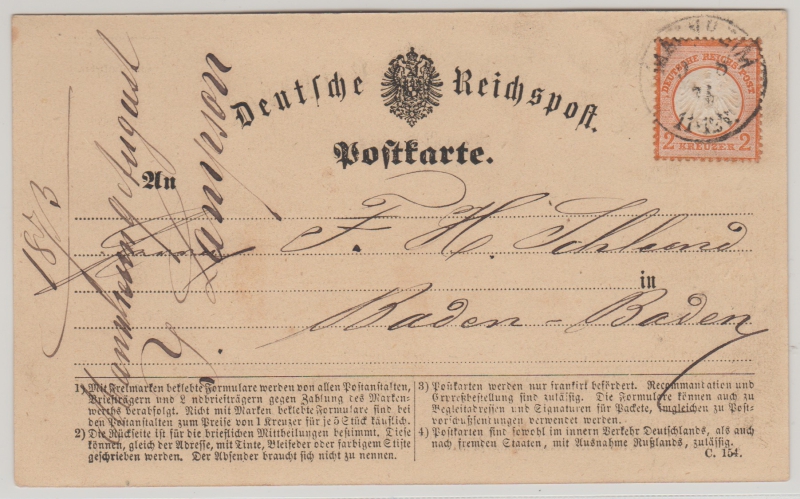 Deutsche Reichspost.
Postkarte.
MANNHEIM
DEUTSCHE REICHS-POST
2 KREUZER 2
An
F. H. Schlund
in
Baden-Baden
1873
Mannheim August
1) Mit Freimarken beklebte Formulare werden von allen Postanstalten,
Briefträgern und Landbriefträgern gegen Zahlung des Marken-
werths verabfolgt. Nicht mit Marken beklebte Formulare sind bei
den Postanstalten zum Preise von 1 Kreuzer für je 5 Stück käuflich.
2) Die Rückseite ist für die brieflichen Mittheilungen bestimmt. Diese
können, gleich der Adresse, mit Tinte, Bleifeder oder farbigem Stifte
geschrieben werden. Der Absender braucht sich nicht zu nennen.
3) Postkarten werden nur frankirt befördert. Recommandation und
Expreßbestellung sind zulässig. Die Formulare können auch zu
Begleitadressen und Signaturen für Packete, imgleichen zu Post-
vorschußsendungen verwendet werden.
4) Postkarten sind sowohl im innern Verkehr Deutschlands, als auch
nach fremden Staaten, mit Ausnahme Rußlands, zulässig.
C. 154.